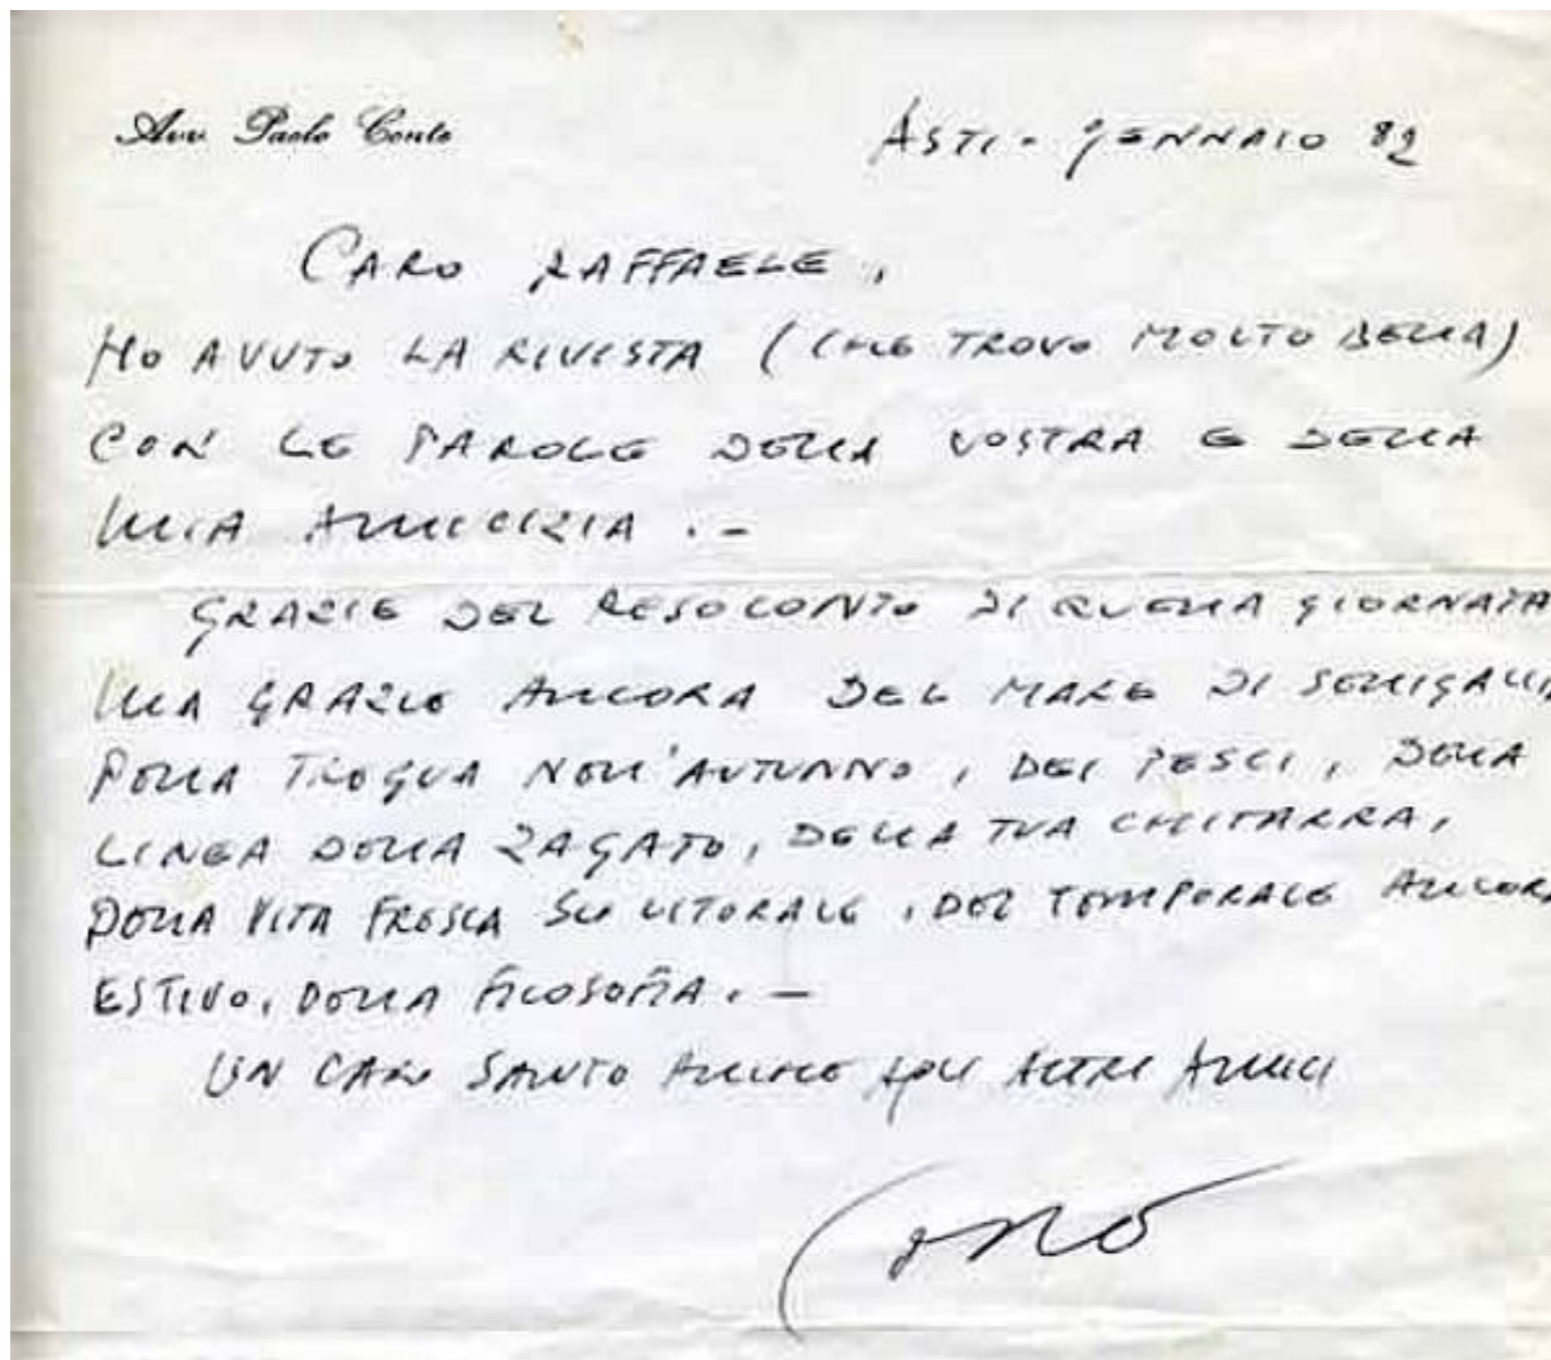 Avv. Paolo Conte
ASTI - GENNAIO 82
CARO RAFFAELE,
HO AVUTO LA RIVISTA (CHE TROVO MOLTO BELLA)
CON LE PAROLE DELLA VOSTRA E DELLA
MIA AMICIZIA . -
GRAZIE DEL RESOCONTO DI QUELLA GIORNATA
MA GRAZIE ANCORA DEL MARE DI SENIGALLIA
DELLA TREGUA NELL'AUTUNNO, DEI PESCI, DELLA
LINEA DELLA ZAGATO, DELLA TUA CHITARRA,
DELLA VITA FRESCA SUL LITORALE, DEL TEMPORALE ANCORA
ESTIVO, DELLA FILOSOFIA. -
UN CARO SALUTO ANCHE AGLI ALTRI AMICI